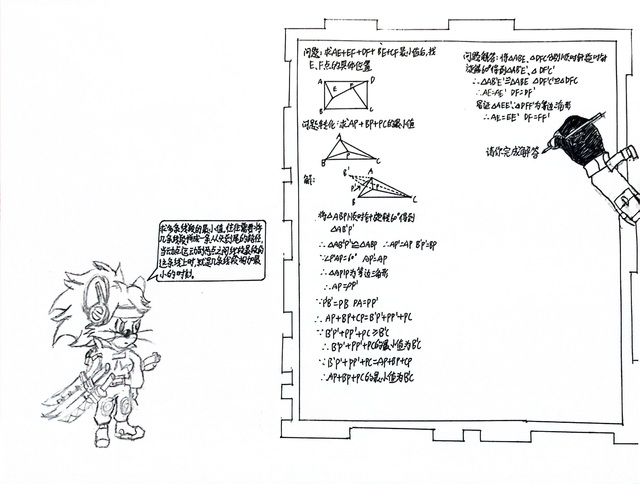 求多条线段的最小值,往往需要将
几条线段拼成一条从头到尾的路径,
当动点运动到两点之间线段最短的
这条线上时,就是几条线段相加最
小的时刻.
问题:求AE+EF+DF+BE+CF最小值后,找
E、F点的具体位置
A
D
E
F
B
C
问题转化:求AP+BP+PC的最小值
A
P
B
C
解:
B'
A
P'
P
B
C
将△ABP顺时针旋转60°得到
△AB'P'
∴△AB'P'≌△ABP ∴AP'=AP B'P'=BP
∵∠P'AP=60° AP'=AP
∴△APP'为等边三角形
∴AP=PP'
∵P'B'=PB PA=PP'
∴AP+BP+CP=B'P'+PP'+PC
∵B'P'+PP'+PC≥B'C
∴B'P'+PP'+PC的最小值为B'C
∵B'P'+PP'+PC=AP+BP+CP
∴AP+BP+PC的最小值为B'C
问题解答:将△ABE、△DFC分别顺时针逆时针
旋转60°得到△AB'E'、△DF'C'
∴△AB'E'≌△ABE △DF'C'≌△DFC
∴AE=AE' DF=DF'
易证△AEE'、△DFF'为等边三角形
∴AE=EE' DF=FF'
请你完成解答